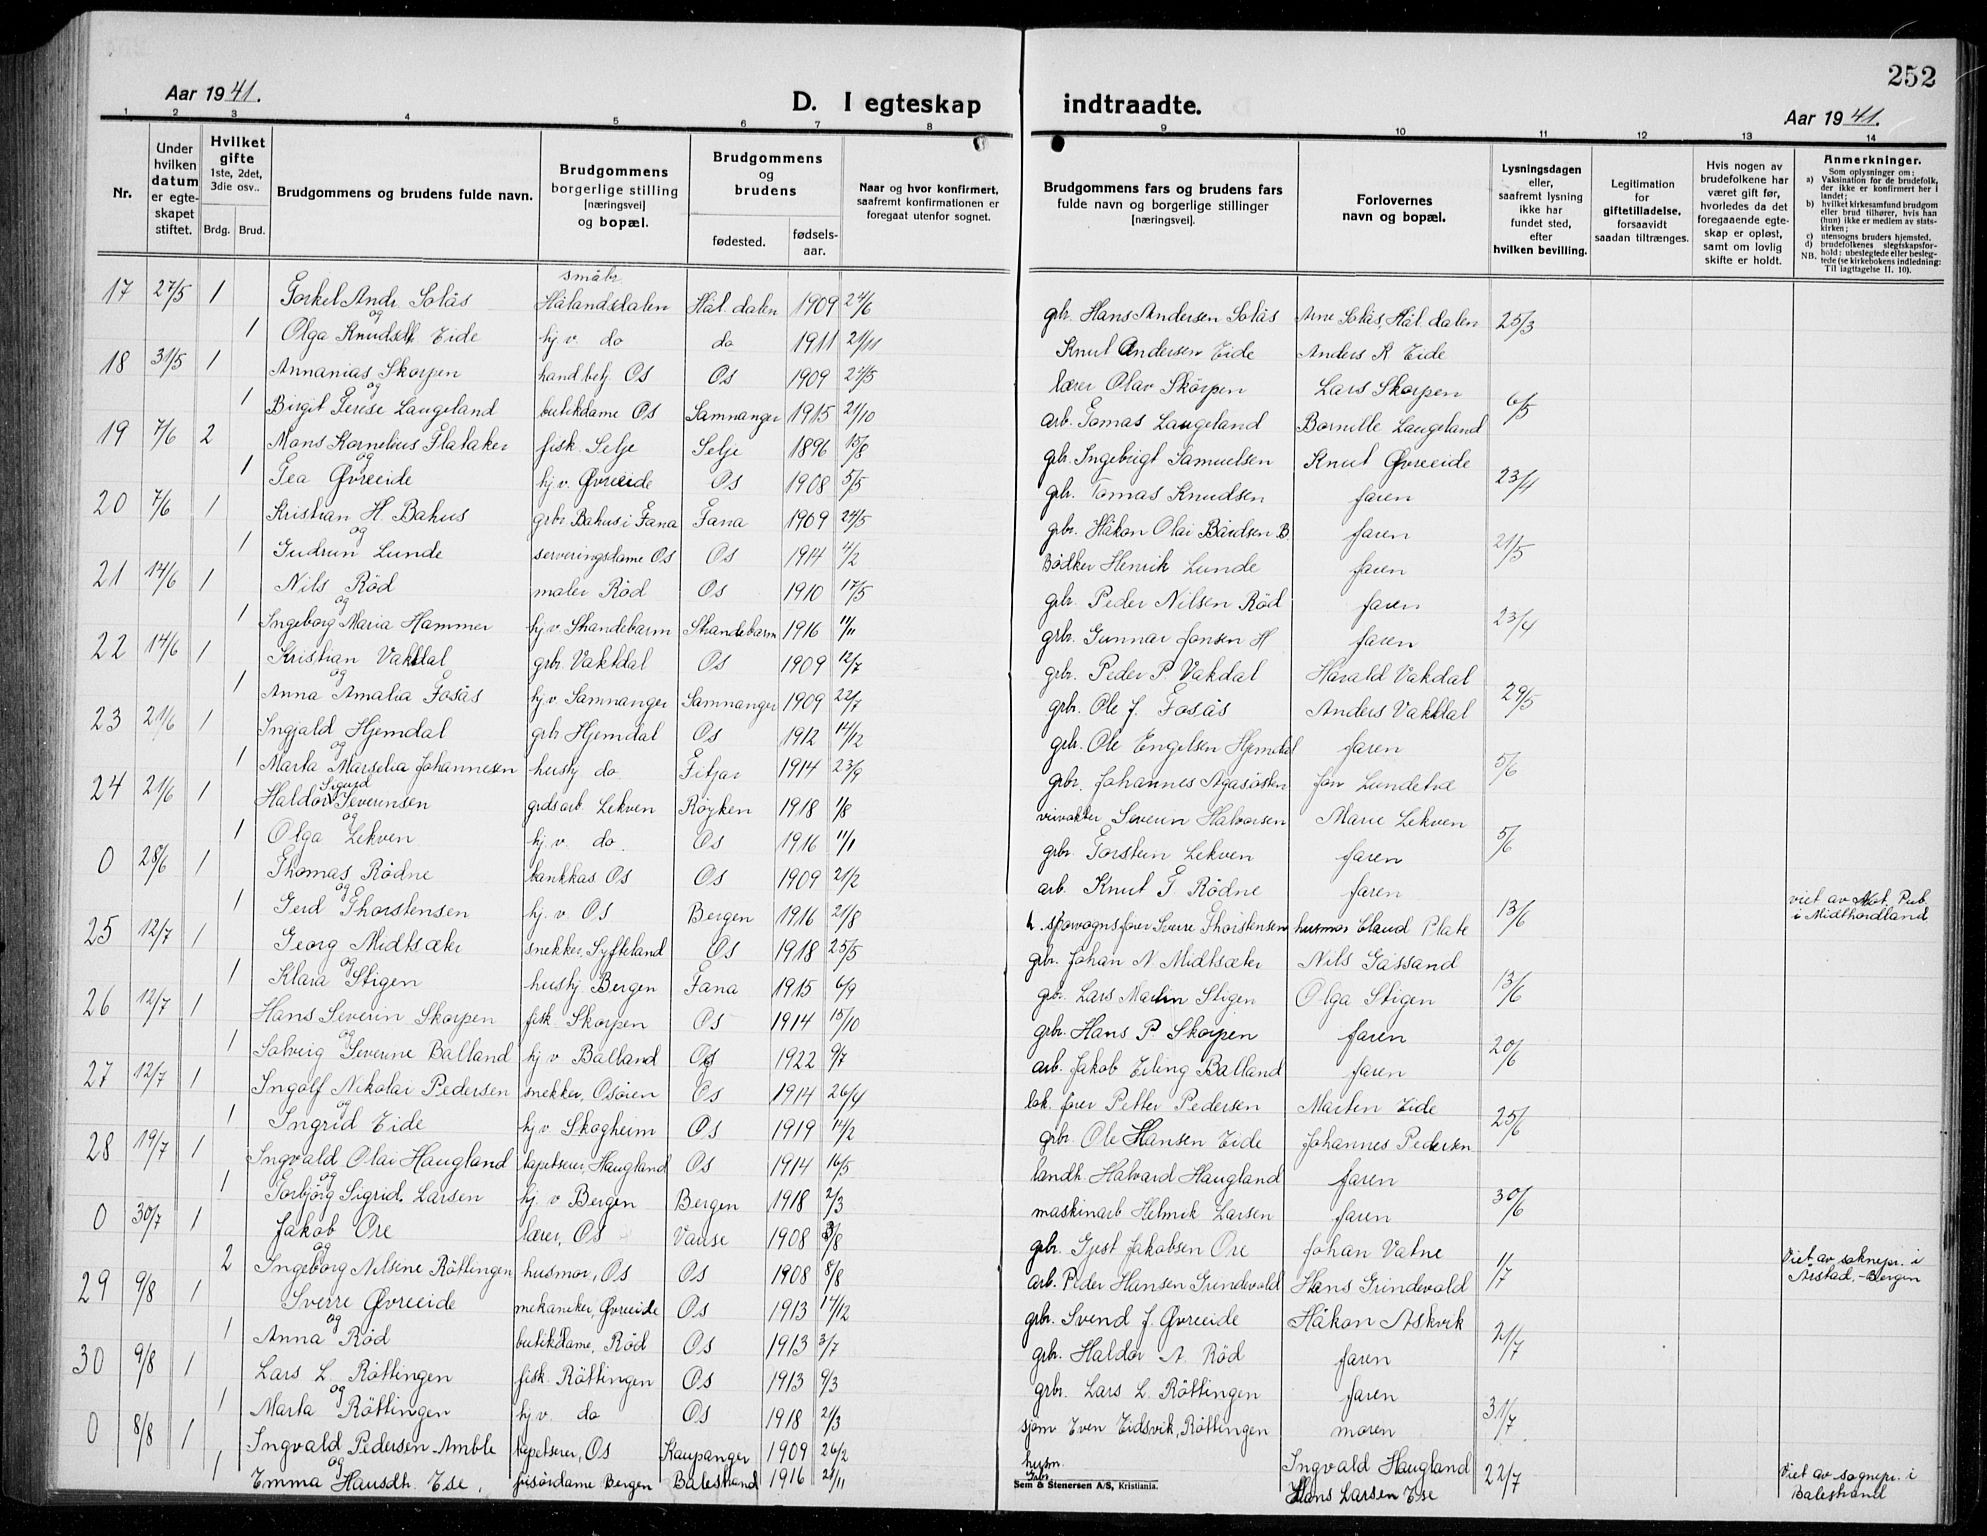 252
Aar 1941.
D. I egteskap indtraadte.
Aar 1941.
1 2 3 4 5 6 7 8 9 10 11 12 13 14
Nr.
Under hvilken datum er egteskapet stiftet.
Hvilket gifte 1ste, 2det, 3die osv..
Brdg. Brud.
Brudgommens og brudens fulde navn.
Brudgommens borgerlige stilling [næringsvei] og bopæl.
Brudgommens og brudens
fødested.
fødselsaar.
Naar og hvor konfirmert, saafremt konfirmationen er foregaat utenfor sognet.
Brudgommens fars og brudens fars fulde navn og borgerlige stillinger [næringsvei].
Forlovernes navn og bopæl.
Lysningsdagen eller, saafremt lysning ikke har fundet sted, efter hvilken bevilling.
Legitimation for giftetilladelse, forsaavidt saadan tiltrænges.
Hvis nogen av brudefolkene har været gift før, hvorledes da det foregaaende egteskap er opløst, samt om lovlig skifte er holdt.
Anmerkninger.
Som oplysninger om:
a) Vaksination for de brudefolk, der ikke er konfirmert her i landet;
b) hvilket kirkesamfund brudgom eller brud tilhører, hvis han (hun) ikke er medlem av statskirken;
c) utensogns bruders hjemsted.
d) brudefolkenes slegtskapsforhold; ubeslegtede eller beslegtede (se kirkebokens indledning:
NB. Til iagttagelse II. 10).
17 27/5 1 Torkel Andr. Solås småbr. Hålandsdalen Hål.dalen 1909 24/6 gbr. Hans Andersen Solås Arne Solås, Hål.dalen 25/3
og
1 Olga Knudsdt. Eide hj.v. do do 1911 21/11 Knut Andersen Eide Anders K Eide
18 31/5 1 Annanias Skorpen handbetj. Os Os 1909 24/5 lærer Olav Skorpen Lars Skorpen 6/5
og
1 Birgit Terese Laugeland butikdame Os Samnanger 1915 21/10 arb. Tomas Laugeland Bornille Laugeland
19 7/6 2 Mons Kornelius Flataker fisk. Selje Selje 1896 15/8 gbr. Ingebrigt Samuelsen Knut Øvreeide 23/4
og
1 Tea Øvreeide hj.v. Øvreeide Os 1908 5/5 gbr. Tomas Knudsen faren
20 7/6 1 Kristian H. Bahus grbr Bahus i Fana Fana 1909 24/5 gbr. Håkon Olai Bårdsen B faren 21/5
og
1 Gudrun Lunde serveringsdame Os Os 1914 4/2 Bødker Henrik Lunde faren
21 14/6 1 Nils Rød maler Rød Os 1910 17/5 gbr. Peder Nilsen Rød faren 23/4
og
1 Ingeborg Maria Hammer hj.v. Strandebarm Strandebarm 1916 11/11 grbr. Gunnar Jonsen H faren
22 14/6 1 Kristian Vakdal grbr. Vakdal Os 1909 12/7 gbr. Peder P. Vakdal Harald Vakdal 29/5
og
1 Anna Amalia Fosås hj.v. Samnanger Samnanger 1909 22/7 grbr. Ole J. Fosås Anders Vakdal
23 21/6 1 Ingjald Hjemdal grbr Hjemdal Os 1912 14/12 grbr. Ole Engelsen Hjemdal faren 5/6
og
1 Marta Marselia Johannesen hushj do. Fitjar 1914 23/9 grbr. Johannes Agasøsten Jon Lundetræ
24 21/6 1 Haldor Sigurd Severinsen grdsarb. Lekven Røyken 1918 1/8 veivokter Severin Halvorsen Marie Lekven 5/6
og
1 Olga Lekven hj.v. do. Os 1916 11/1 grbr. Torstein Lekven faren
0 28/6 1 Thomas Rødne bankkas. Os Os 1909 21/2 arb. Knut T. Rødne faren 13/6 viet av Not. Pub. i Midthordland
og
1 Gerd Thorstensen hj.v. Os Bergen 1916 21/8 sporvognsfører Sverre Thorstensen husmor Plate
25 12/7 1 Georg Midtsæter snekker, Syfteland Os 1918 25/5 grbr. Johan N. Midtsæter Nils Gåssand 13/6
og
1 Klara Stigen hushj. Bergen Fana 1915 6/9 gbr. Lars Martin Stigen Olga Stigen
26 12/7 1 Hans Severin Skorpen fisk. Skorpen Os 1914 15/10 grbr. Hans P. Skorpen faren 20/6
og
1 Solveig Severine Balland hj v Balland Os 1922 9/7 arb. Jakob Eiling Balland faren
27 12/7 1 Ingolf Nikolai Pedersen snekker, Osøren Os 1914 26/4 lok. fører Petter Pedersen Marten Eide 25/6
og
1 Ingrid Eide hj.v Skogheim Os 1919 12/2 grbr. Ole Hansen Eide Johannes Pedersen
28 19/7 1 Ingvald Olai Haugland tapetserer, Haugland Os 1914 16/5 landh. Halvard Haugland faren 30/6
og
1 Torbjørg Sigrid Larsen hj. v Bergen Bergen 1918 2/3 maskinarb Helmik Larsen faren
0 30/7 1 Jakob Ore lærer, Os Vanse 1908 3/8 gbr. Gjest Jakobsen Ore Johan Vatne 1/7 Viet av soknepr. i Årstad,-Bergen
og
2 Ingeborg Nilsine Røttingen husmor, Os Os 1908 8/8 arb. Peder Hansen Grindevold Hans Grindevold
29 9/8 1 Sverre Øvreeide mekaniker, Øvreeide Os 1913 14/12 grbr. Svend J. Øvreeide Håkon Askvik 21/7
og
1 Anna Rød butikdame, Rød Os 1913 3/7 grbr. Haldor A. Rød faren
30 9/8 1 Lars L. Røttingen fisk. Røttingen Os 1913 9/3 grbr. Lars L. Røttingen faren 31/7
og
1 Marta Røttingen hj.v. do Os 1918 21/3 sjøm Even Eidsvik, Røttingen moren
0 8/8 1 Ingvald Pedersen Amble tapetserer, Os Kaupanger 1909 26/2 husm. Ingvald Haugland 22/7 Viet av sognepr. i Balestrand
og
1 Emma Hansdt. Ese frisørdame Bergen Balestrand 1916 21/11 Grbr. Hans Larsen Ese
Sem & Stenersen A/S, Kristiania.